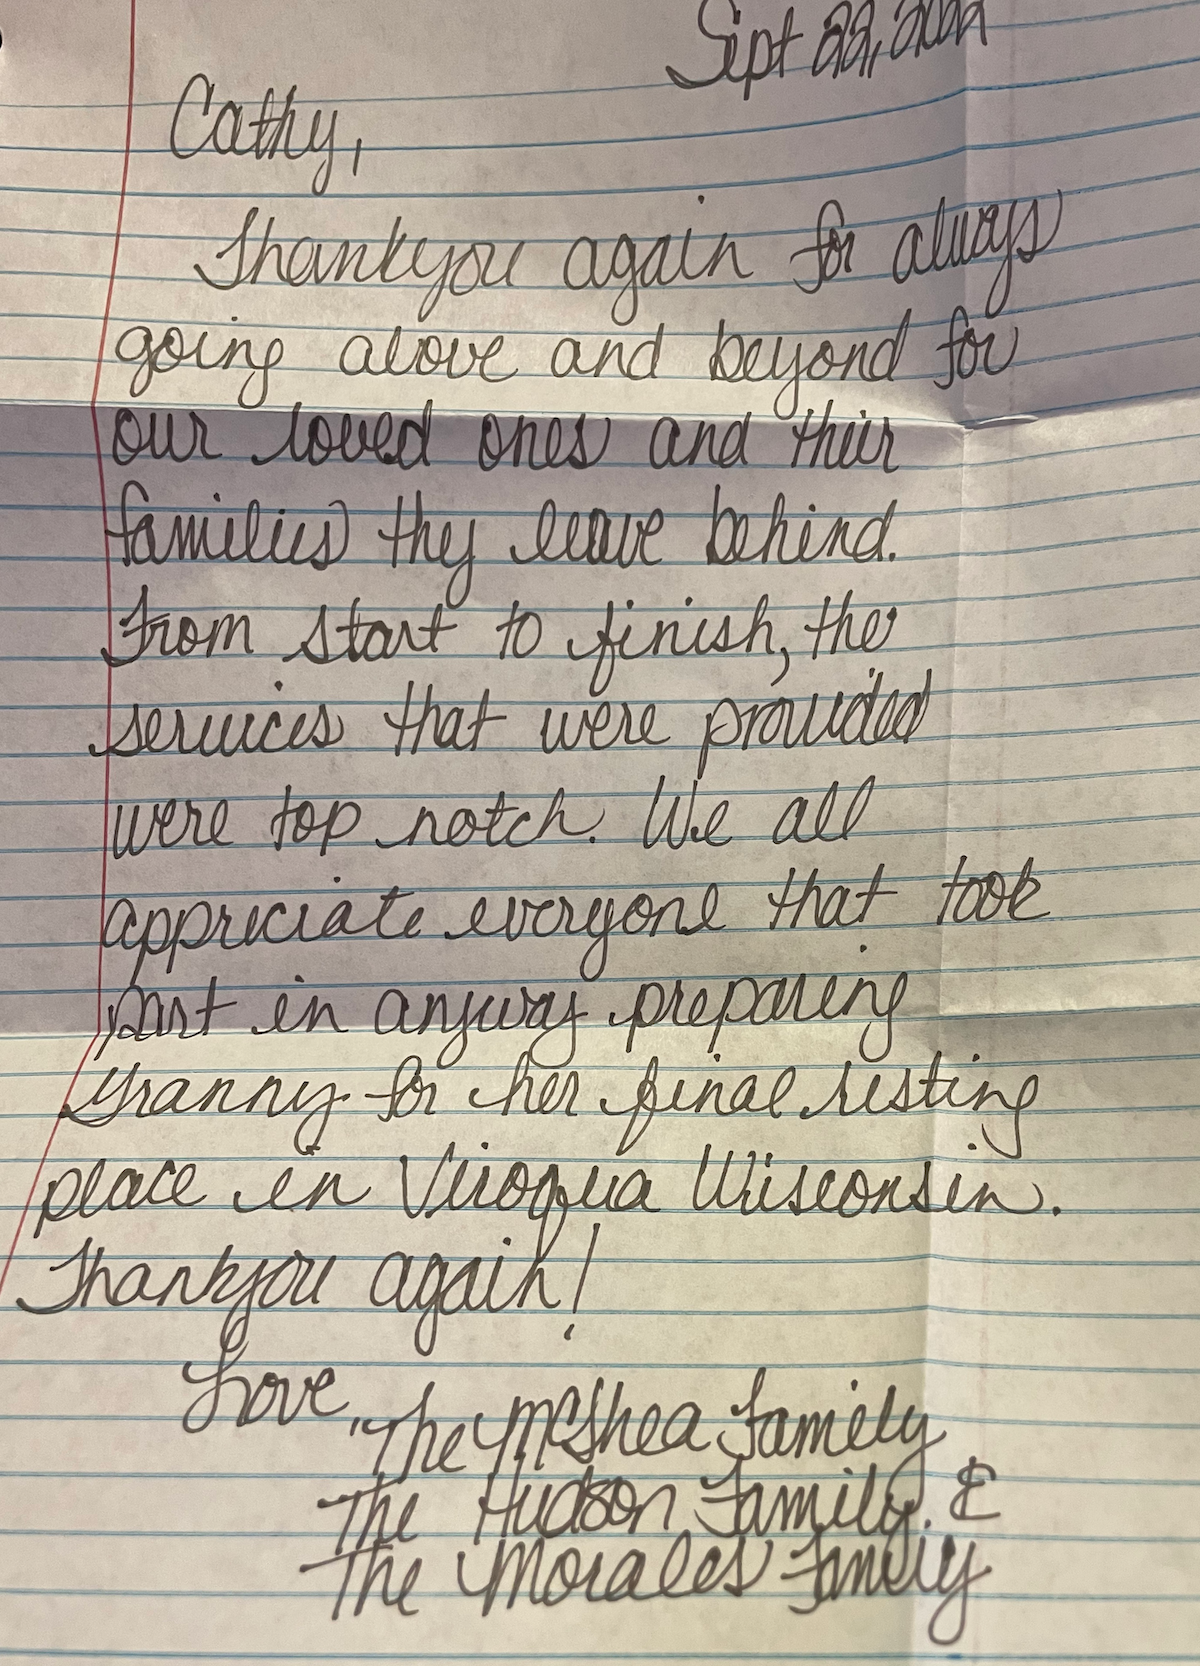 Sept 22, 2022
Cathy,
Thankyou again for always
going above and beyond for
our loved ones and their
families they leave behind.
From start to finish, the
services that were provided
were top notch. We all
appreciate everyone that took
part in anyway preparing
Granny for her final resting
place in Viroqua Wisconsin.
Thankyou again!
Love,
The McShea Family
The Hudson Family. &
The Morales Family